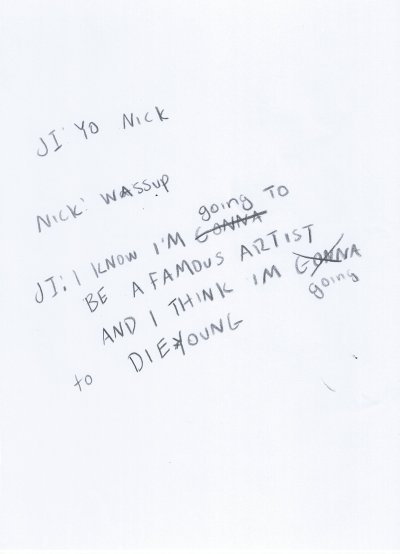 JI: YO NICK
NICK: WASSUP
going TO
JI: I KNOW I'M GONNA
BE A FAMOUS ARTIST
AND I THINK IM GONNA
going
to DIE YOUNG